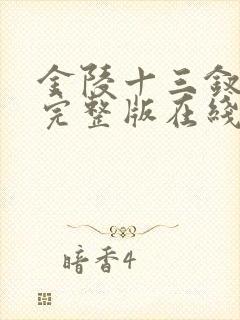 金陵十三釵
完整版在綫
暗香4